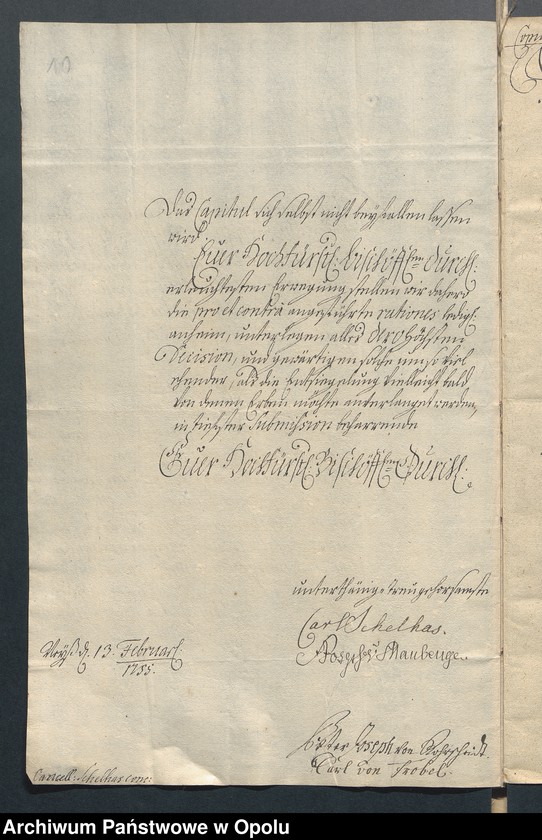 10
Das Capitul sich selbst nicht beyfallen lassen
wird.
Euer Hochfürstl: Bischöffl:en Durchl:
erleuchtesten Erwegung stellen wir dahero
die pro et contra angeführte rationes ledigl:
anheim, unterlegen alles Dero höchsten
Decision, und gewärtigen solche umso viel
ehender, als die Entsiegelung vielleicht bald
von denen Erben möchte anverlanget werden,
in tiefster Submission beharrende
Euer Hochfürstl: Bischöffl:en Durchl:
unterthänig-treugehorsamste
Carl Schelhas.
Josephus Maubeuge.
Neyß d. 13. Februarÿ
1755.
Joseph von Rohrscheidt.
Carl von Frobel.
Cancell: Schelhas conc:
Com
Archiwum Państwowe w Opolu